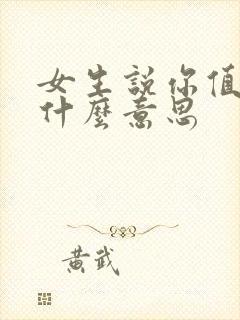 女生說你值
什麼意思
黃武